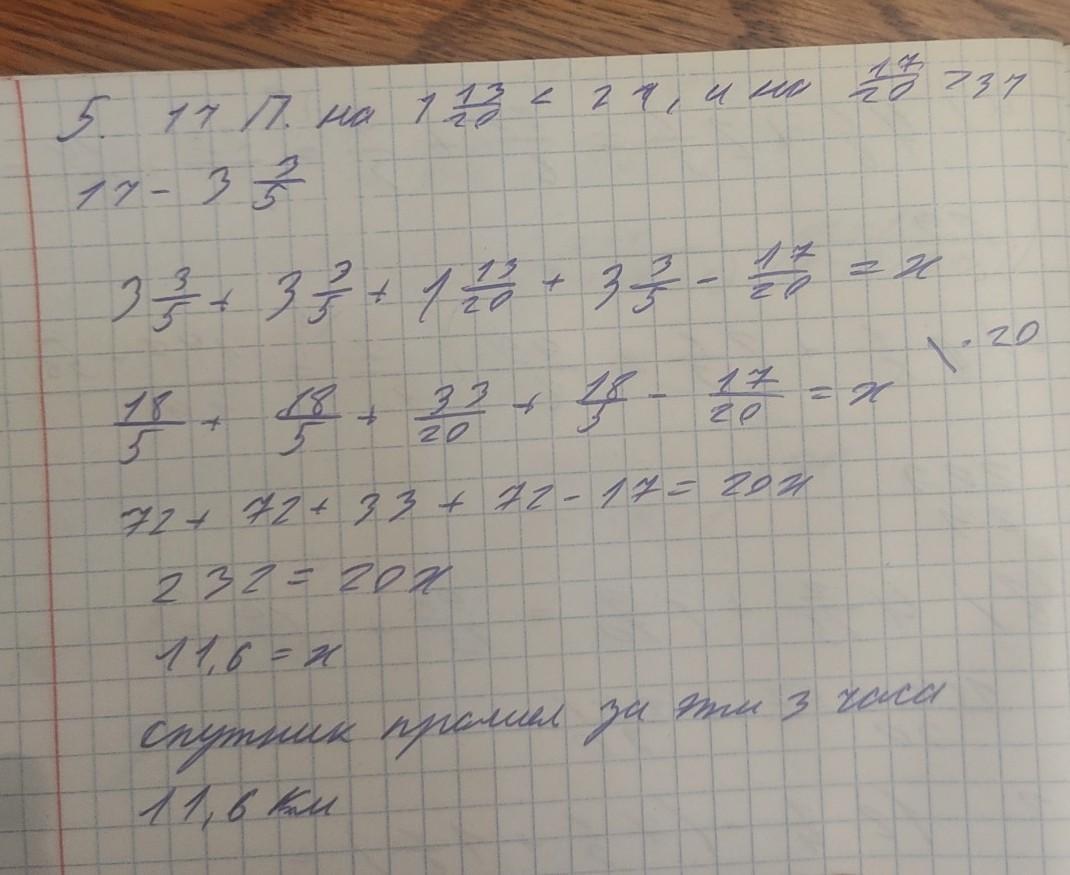 5. 1ч П. на 1 13/20 < 2ч, и на 17/20 > 3ч
1ч - 3 3/5
3 3/5 + 3 3/5 + 1 13/20 + 3 3/5 - 17/20 = x
18/5 + 18/5 + 33/20 + 18/5 - 17/20 = x \ · 20
72 + 72 + 33 + 72 - 17 = 20x
232 = 20x
11,6 = x
спутник прошел за эти 3 часа
11,6 км